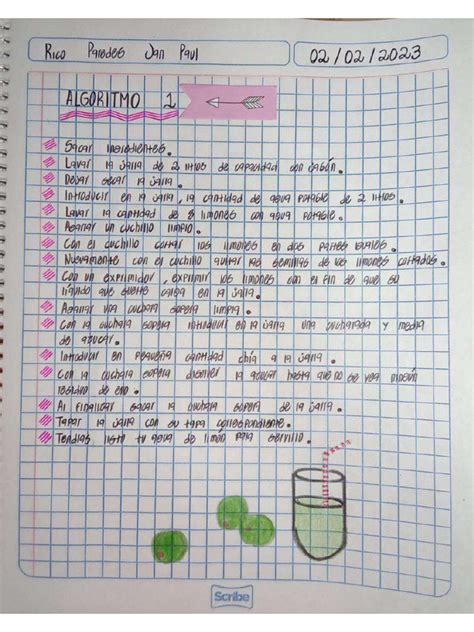 Rico Paredes Jan Paul
02/02/2023
ALGORITMO 1
Sacar ingredientes.
Lavar la jarra de 2 litros de capacidad con jabón.
Dejar secar la jarra.
Introducir en la jarra, la cantidad de agua potable de 2 litros.
Lavar la cantidad de 8 limones con agua potable.
Agarrar un cuchillo limpio.
Con el cuchillo cortar los limones en dos partes iguales.
Nuevamente con el cuchillo quitar las semillas de los limones cortados.
Con un exprimidor, exprimir los limones con el fin de que su
líquido que suelte caiga en la jarra.
Agarrar una cuchara sopera limpia.
Con la cuchara sopera introducir en la jarra una cucharada y media
de azúcar.
Introducir en pequeña cantidad chía a la jarra.
Con la cuchara sopera disolver la azúcar hasta que no se vea ningún
residuo de eso.
Al finalizar sacar la cuchara sopera de la jarra.
Tapar la jarra con su tapa correspondiente.
Tendrás listo tu agua de limón para servirlo.
Scribe